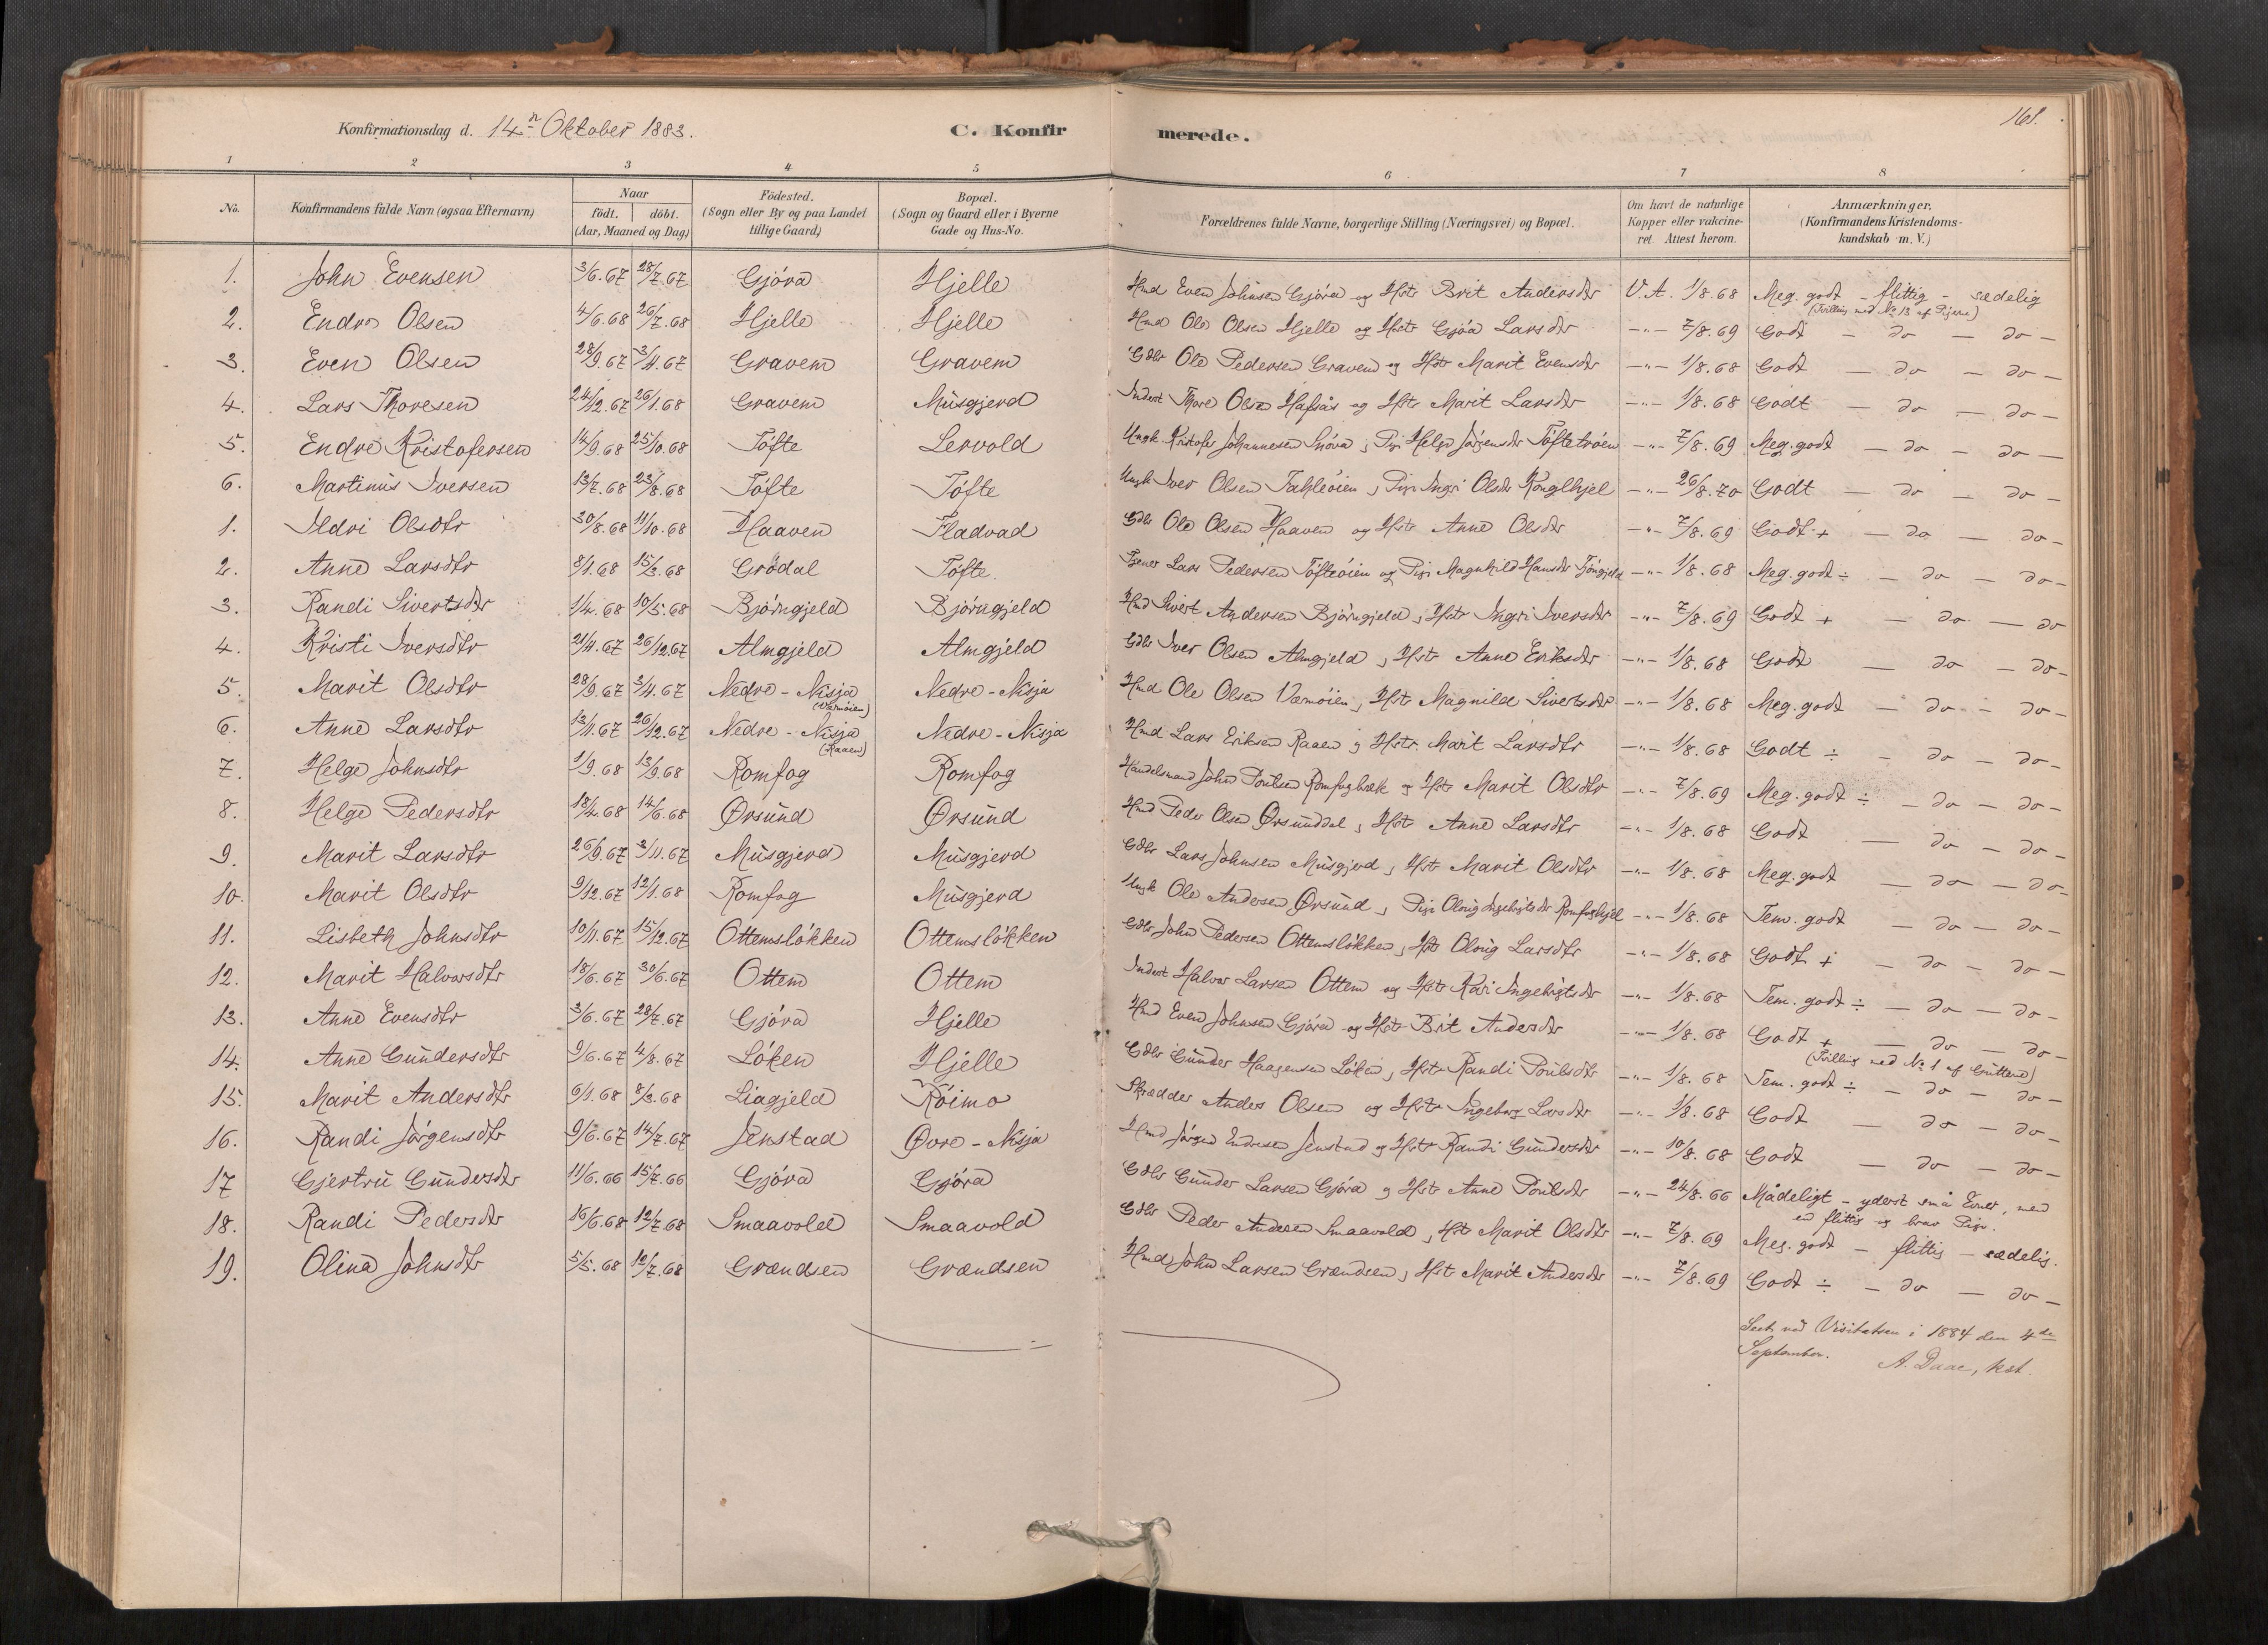 161.
Konfirmationsdag d. 14n Oktober 1883. C. Konfirmerede.
1 2 3 4 5 6 7 8
No. Konfirmandens fulde Navn (ogsaa Efternavn) Naar födt. döbt. (Aar, Maaned og Dag) Födested. (Sogn eller By og paa Landet tillige Gaard) Bopæl. (Sogn og Gaard eller i Byerne Gade og Hus-No. Forældrenes fulde Navne, borgerlige Stilling (Næringsvei) og Bopæl. Om havt de naturlige Kopper eller vakcineret. Attest herom. Anmærkninger. (Konfirmandens Kristendomskundskab m. V.)
1. John Evensen 3/6.67 28/7.67 Gjóra Hjelle Hmd Even Johnsen Gjóra og Hstr Brit Andersdtr V.A. 1/8.68 Meg. godt - flittig - sædelig
(Tvilling med No 13 af Pigerne)
2. Endre Olsen 4/6.68 26/7.68 Hjelle Hjelle Hmd Ole Olsen Hjelle og Hstr Gjóa Larsdtr -"- 7/8.69 Godt - do - do -
3. Even Olsen 28/9.67 3/11.67 Gravem Gravem Gdbr Ole Pedersen Gravem og Hstr Marit Evensdtr -"- 1/8.68 Godt - do - do -
4. Lars Thoresen 24/12.67 26/1.68 Gravem Musgjerd Inderst Thore Olsen Hafsås og Hstr Marit Larsdtr -"- 1/8.68 Godt - do - do -
5. Endre Kristofersen 14/9.68 25/10.68 Tófte Lervold Ungk. Kristofer Johannesen Snóva, Pige Helge Jórgensdtr Tóftetróen -"- 7/8.69 Meg. godt - do - do -
6. Martinus Iversen 13/7.68 23/8.68 Tófte Tófte Ungk Iver Olsen Fahleóien, Pige Ingri Olsdtr Konglhjel -"- 26/8.70 Godt - do - do -
1. Ildri Olsdtr 30/8.68 11/10.68 Haaven Fladvad Gdbr Ole Olsen Haaven og Hstr Anne Olsdtr -"- 7/8.69 Godt + - do - do -
2. Anne Larsdtr 8/1.68 15/3.68 Grödal Tófte. Tjener Lars Pedersen Tófteóien og Pige Magnhild Hansdtr -"- 1/8.68 Meg. godt ÷ - do - do -
3. Randi Sivertsdtr 1/4.68 10/5.68 Bjórngjeld Bjórngjeld Hmd Sivert Andersen Bjórngjeld, Hstr Ingri Iversdtr -"- 7/8.69 Godt + - do - do
4. Kristi Iversdtr 21/11.67 26/12.67 Almgjeld Almgjeld Gdbr Iver Olsen Almgjeld, Hstr Anne Eriksdtr -"- 1/8.68 Godt - do - do -
5. Marit Olsdtr 28/9.67 3/11.67 Nedre-Nisja (Værmóien) Nedre-Nisja Hmd Ole Olsen Værmóien, Hstr Magnild Sivertsdtr -"- 1/8.68 Meg. godt - do - do -
6. Anne Larsdtr 13/11.67 26/12.67 Nedre-Nisja (Raaen) Nedre-Nisja Hmd Lars Eriksen Raaen og Hstr Marit Larsdtr -"- 1/8.68 Godt ÷ - do - do -
7. Helge Johnsdtr 1/9.68 13/9.68 Romfog Romfog Handelsmand John Poulsen Romfogbæk og Hstr Marit Olsdtr -"- 7/8.69 Meg. godt ÷ - do - do -
8. Helge Pedersdtr 18/4.68 14/6.68 Ørsund Ørsund Hmd Peder Olsen Ørsunddal, Hstr Anne Larsdtr -"- 1/8.68 Godt - do - do -
9. Marit Larsdtr 26/9.67 3/11.67 Musgjerd Musgjerd Gdbr Lars Johnsen Musgjerd, Hstr Marit Olsdtr -"- 1/8.68 Meg. godt - do - do -
10. Marit Olsdtr 9/12.67 12/1.68 Romfog Musgjerd Ungk Ole Andersen Ørsund, Pige Oloug Ingebrigtsdtr Romfoghjel -"- 1/8.68 Tem. godt - do - do -
11. Lisbeth Johnsdtr 10/11.67 15/12.67 Ottemslókken Ottemslókken Gdbr John Pedersen Ottemslókken, Hstr Oloug Larsdtr -"- 1/8.68 Godt + - do - do -
12. Marit Halvorsdtr 18/6.67 30/6.67 Ottem Ottem Inderst Halvor Larsen Ottem og Hstr Kari Ingebrigtsdtr -"- 1/8.68 Tem. godt ÷ - do - do -
13. Anne Evensdtr 3/6.67 28/7.67 Gjóra Hjelle Hmd Even Johnsen Gjóra og Hstr Brit Andersdtr -"- 1/8.68 Godt + - do - do -
(Tvilling med No 1 af Gutterne)
14. Anne Gundersdtr 9/6.67 4/8.67 Lóken Hjelle Gdbr Gunder Haagensen Lóken, Hstr Randi Poulsdtr -"- 1/8.68 Tem. godt ÷ - do - do -
15. Marit Andersdtr 6/1.68 8/3.68 Liagjeld Róimo Skrædder Anders Olsen og Hstr Ingeborg Larsdtr -"- 1/8.68 Godt - do - do -
16. Randi Jórgensdtr 9/6.67 14/7.67 Jenstad Øvre-Nisja Hmd Jórgen Endresen Jenstad og Hstr Randi Gundersdtr -"- 10/8.68 Godt - do - do -
17 Gjertru Gundersdtr 11/6.66 15/7.66 Gjóra Gjóra Gdbr Gunder Larsen Gjóra og Hstr Anne Poulsdtr -"- 24/8.66 Mådeligt - yderst små Evner, men
en flittig og brav Pige.
18. Randi Pedersdtr 16/6.68 12/7.68 Smaavold Smaavold Gdbr Peder Andersen Smaavold, Hstr Marit Olsdtr -"- 7/8.69 Meg. godt - flittig - sædelig.
19. Olina Johnsdtr 5/5.68 12/7.68 Grændsen Grændsen Hmd John Larsen Grændsen, Hstr Marit Andersdtr -"- 7/8.69 Godt ÷ - do - do -
Seet ved Visitatsen i 1884 den 4de
September. A. Daae, kst.